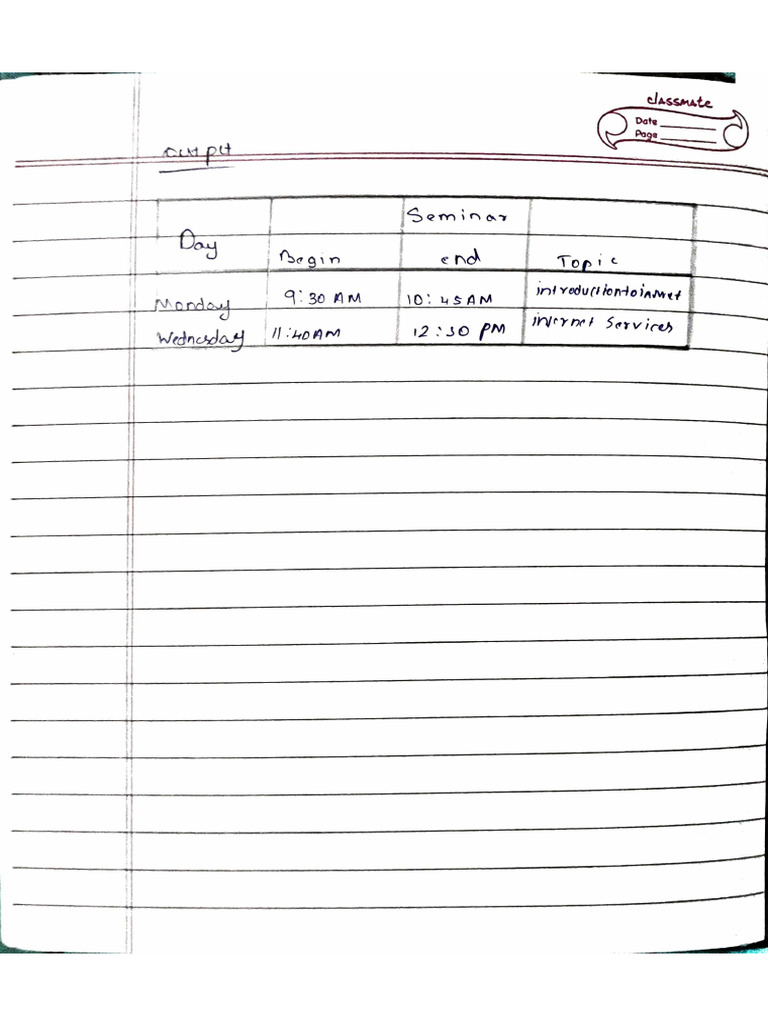 classmate
Date
Page
output
Seminar
Day
Begin end Topic
Monday 9:30 AM 10:45AM introductiontointernet
Wednesday 11:40AM 12:30 PM internet Services